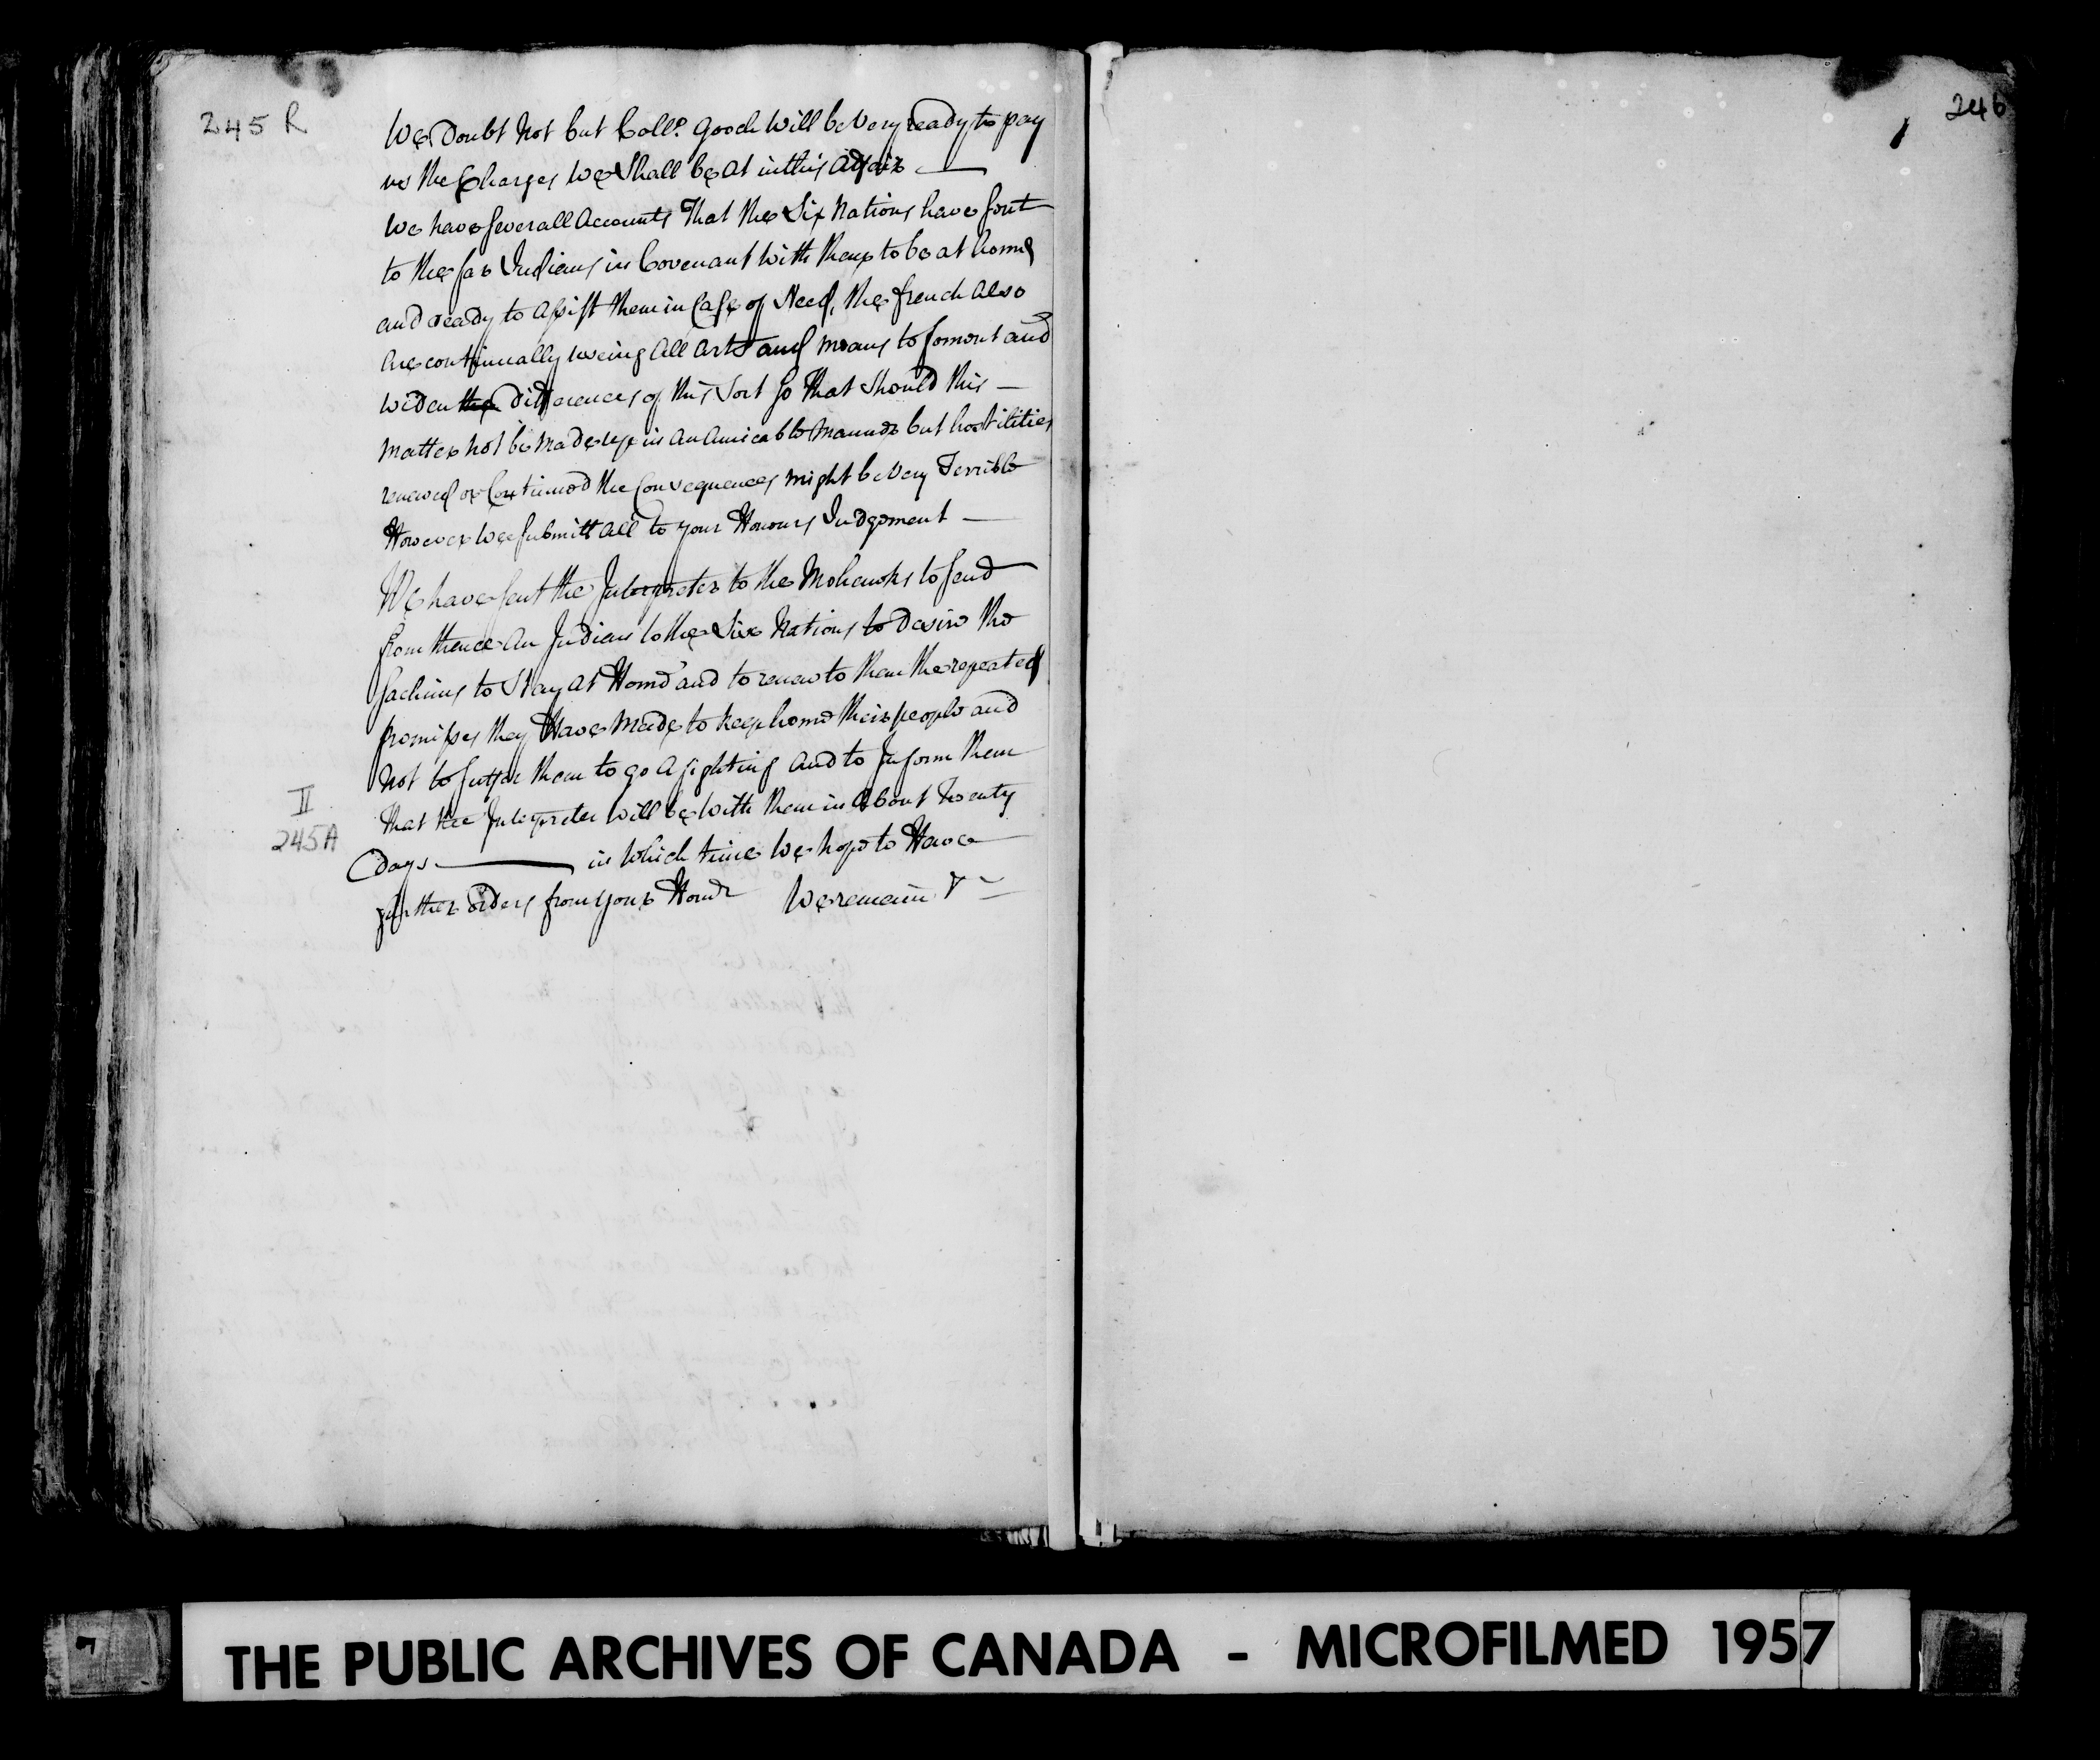 245 R
We Doubt Not but Coll.º Gooch Will be Very ready to pay
us the Charges We Shall be At in this Affair
We have severall Accounts That the Six Nations have sent
to the far Indians in Covenant With them to be at home
and ready to Assist them in Case of Need, the french Also
Are continually useing All Arts and means to foment and
widen the differences of this Sort So That Should this
Matter not be Made up in An Amicable Manner but hostilities
renewed or Continued the Consequences might be Very Terrible
However We submitt All to your Honours Judgement
We have sent the Interpreter to the Mohawks to send
from thence An Indian to the Six Nations to desire the
Sachims to Stay At Home and to renew to them the repeated
promises they Have Made to keep home their people and
Not to suffer them to go A fighting And to Inform them
That the Interpreter Will be With them in About Twenty
days in Which time We hope to Have
further orders from your Honr We remain &
II
245A
246
THE PUBLIC ARCHIVES OF CANADA - MICROFILMED 1957